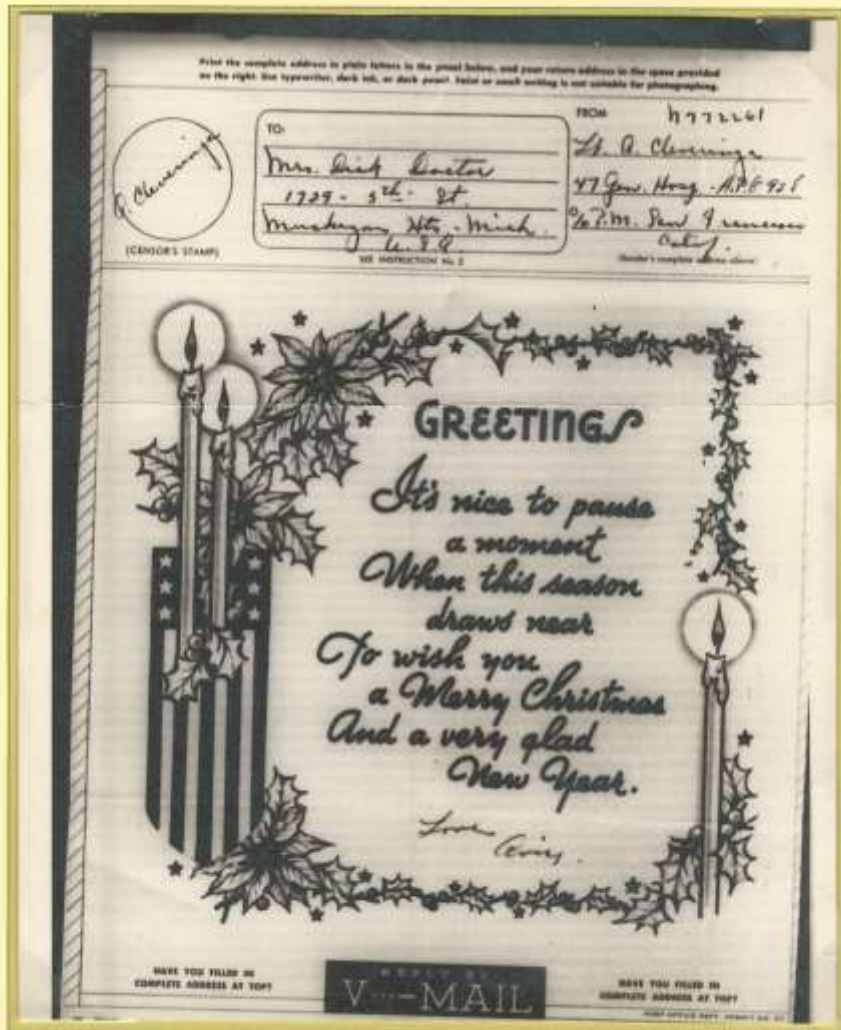 Print the complete address in plain letters in the panel below, and your return address in the space provided
on the right. Use typewriter, dark ink, or dark pencil. Faint or small writing is not suitable for photographing.
(CENSOR'S STAMP)
TO:
Mrs. Dick Doctor
1729 - 5th - St.
Muskegon Hts. - Mich.
U.S.A.
SEE INSTRUCTION No. 2
FROM
N772261
Lt. A. Cleveringa
47 Gen. Hosp. - A.P.O 928
c/o P.M. San Francisco
Calif.
(Sender's complete address above)
A. Cleveringa
GREETINGS
It's nice to pause
a moment
When this season
draws near
To wish you
a Merry Christmas
And a very glad
New Year.
Love
HAVE YOU FILLED IN
COMPLETE ADDRESS AT TOP?
REPLY BY
V···–MAIL
HAVE YOU FILLED IN
COMPLETE ADDRESS AT TOP?